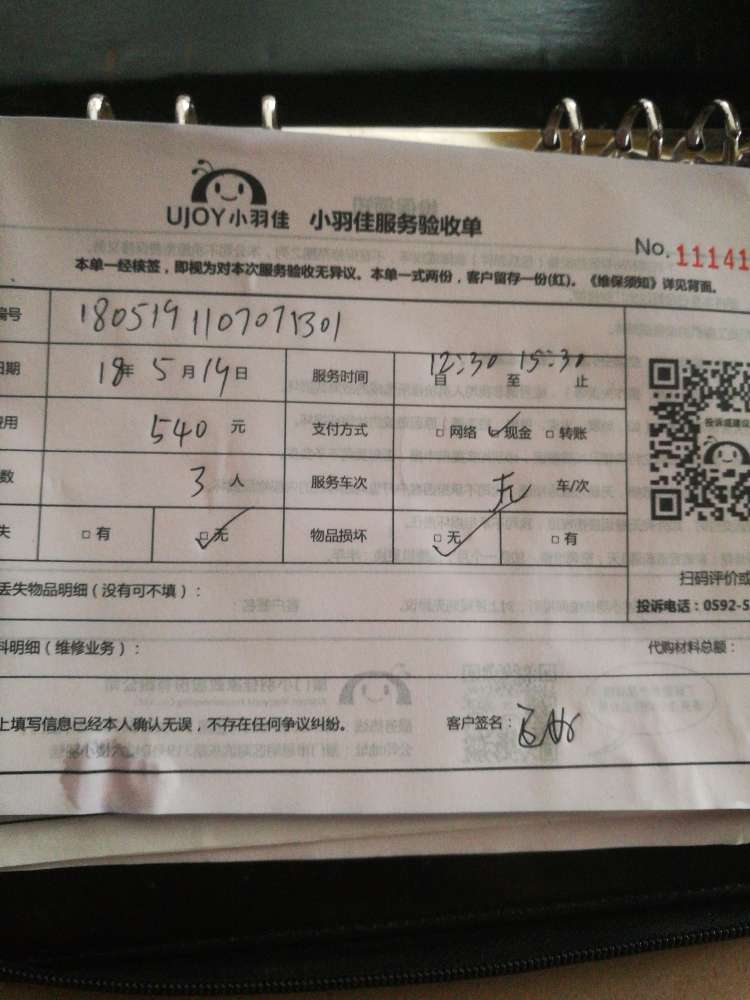 UJOY小羽佳 小羽佳服务验收单
No. 11141
本单一经核签，即视为对本次服务验收无异议。本单一式两份，客户留存一份(红)。《维保须知》详见背面。
编号 180519110707301
日期 18年 5月 19日 服务时间 12:30 15:30
自 至 止
费用 540 元 支付方式 □ 网络 □ 现金 □ 转账
数 3 人 服务车次 无 车/次
失 □ 有 □ 无 物品损坏 □ 无 □ 有
投诉或建议
扫码评价或
丢失物品明细（没有可不填）：
投诉电话：0592-5
料明细（维修业务）：
代购材料总额：
上填写信息已经本人确认无误，不存在任何争议纠纷。 客户签名：